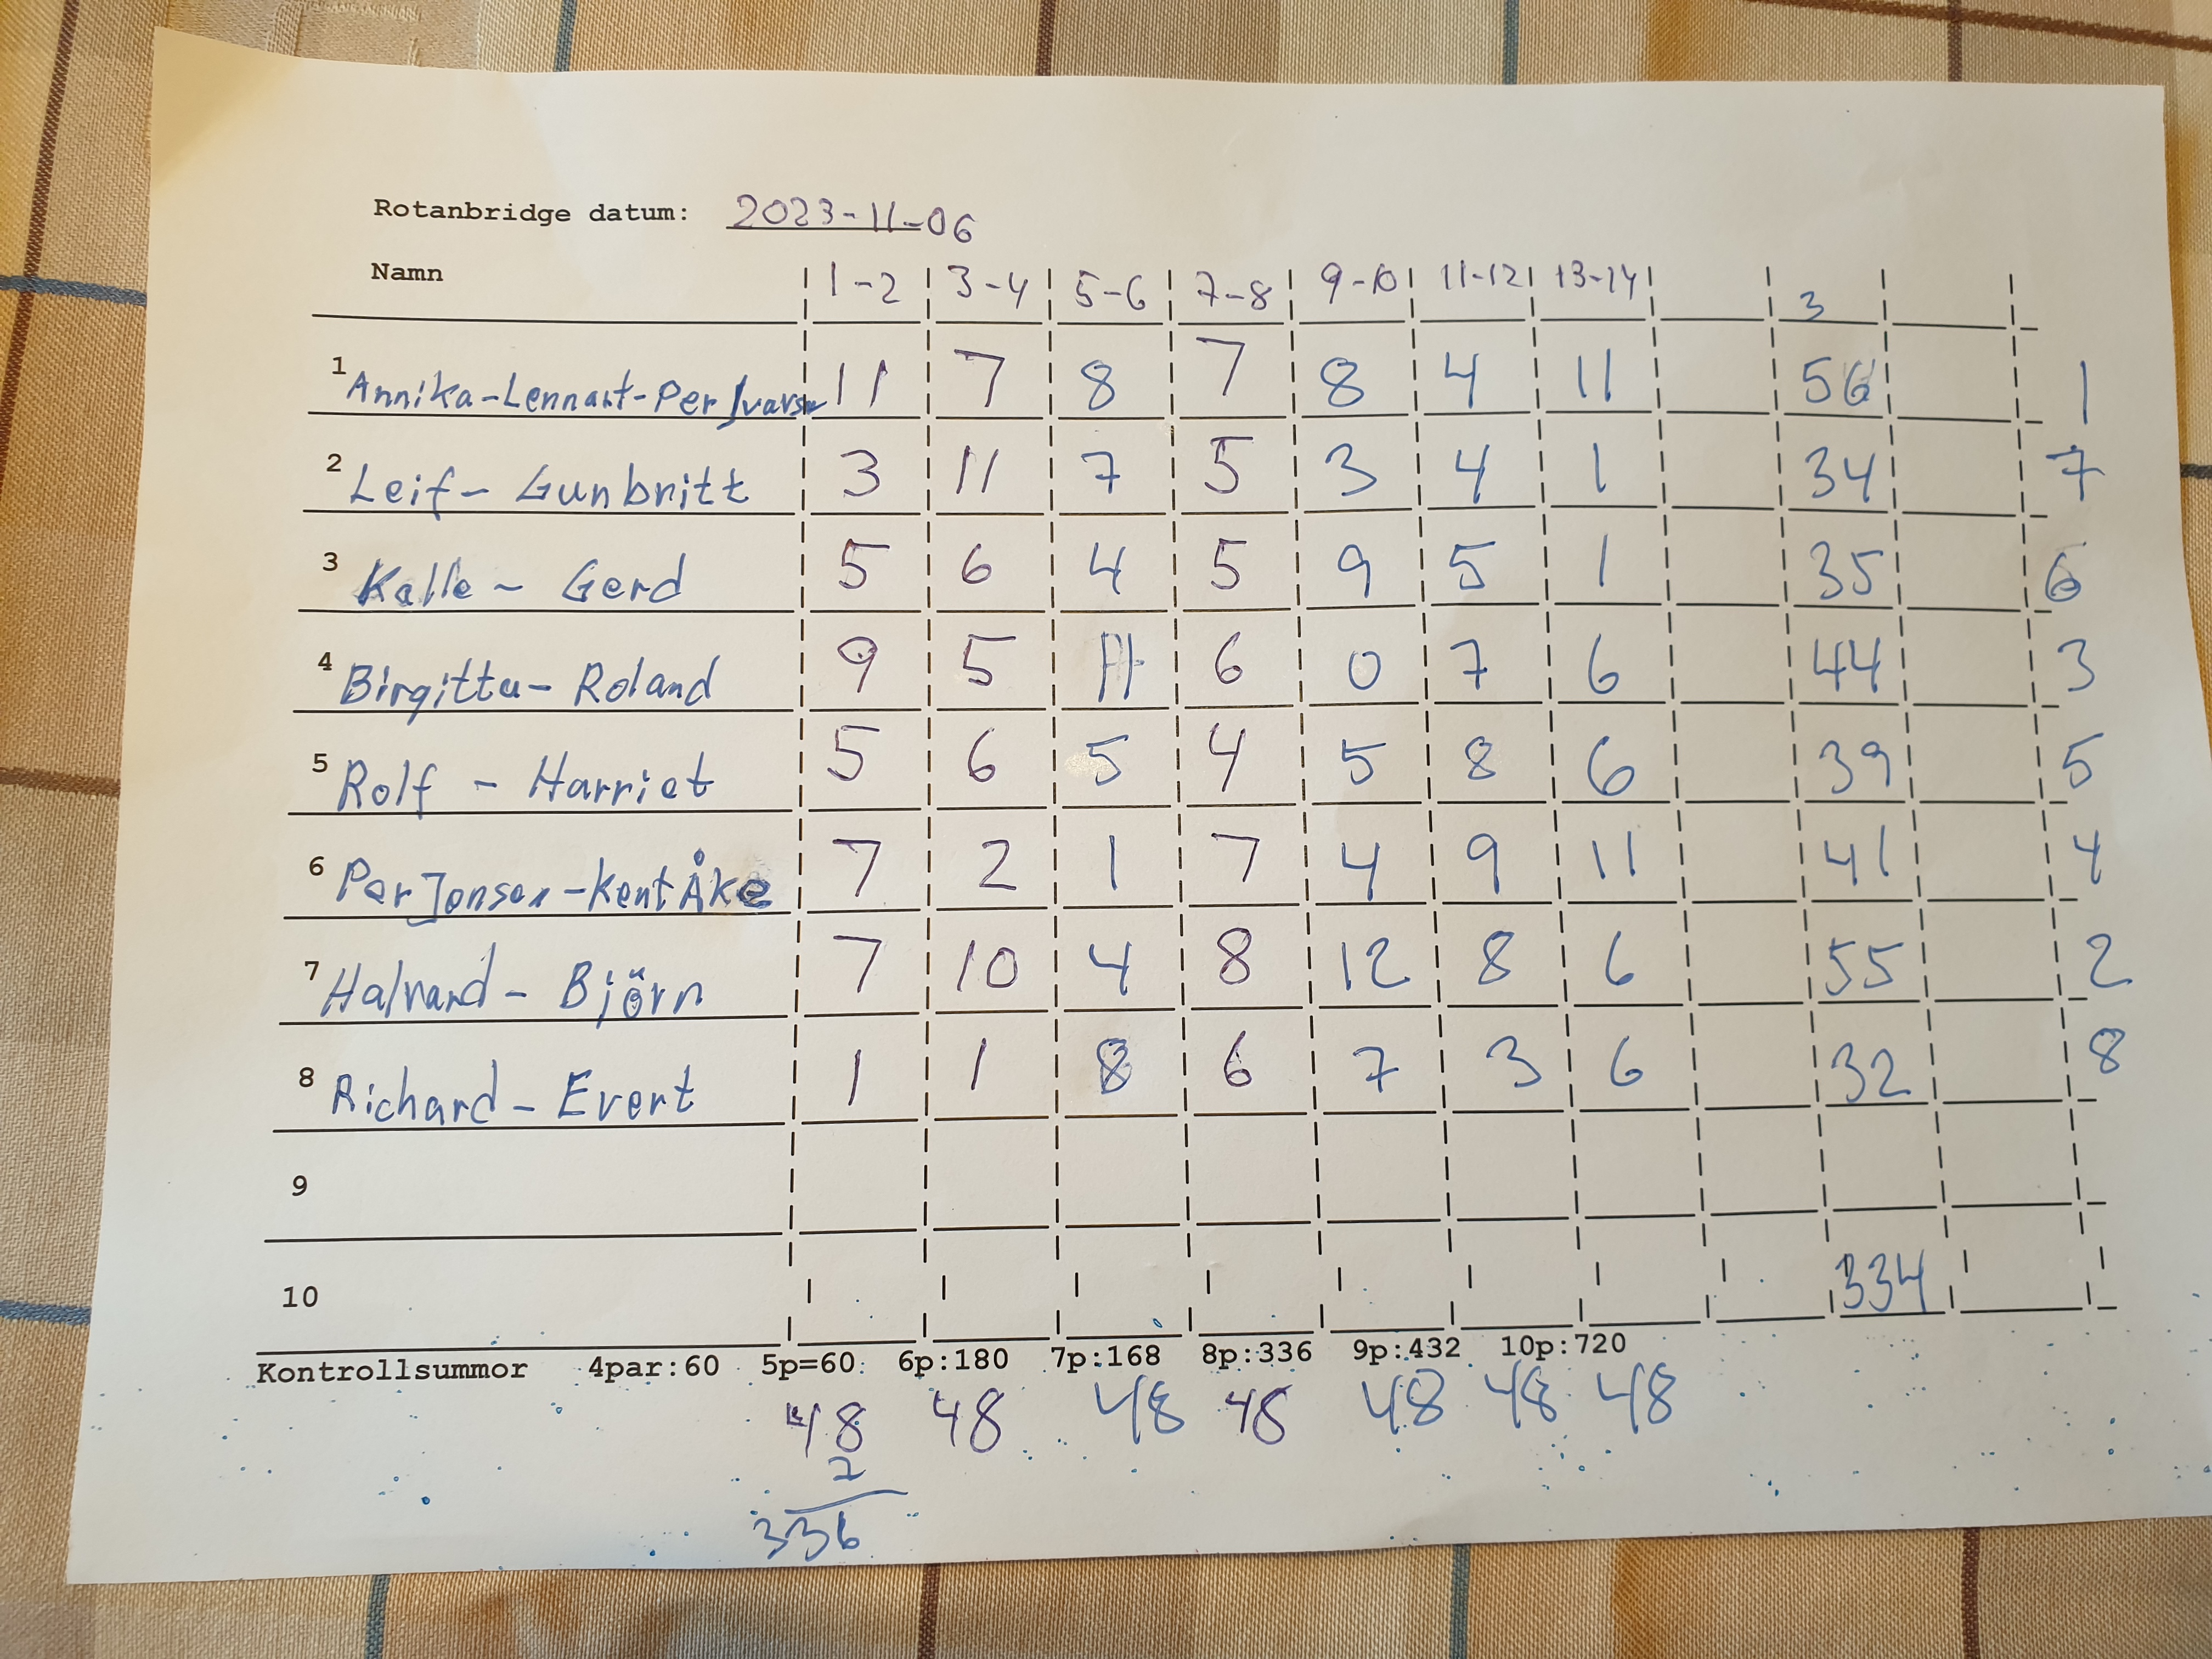 Rotanbridge datum: 2023-11-06
Namn 1-2 3-4 5-6 7-8 9-10 11-12 13-14 3
1 Annika-Lennart-Per Ivarsn 11 7 8 7 8 4 11 56 1
2 Leif- Gunbritt 3 11 7 5 3 4 1 34 7
3 Kalle - Gerd 5 6 4 5 9 5 1 35 6
4 Birgitta- Roland 9 5 11 6 0 7 6 44 3
5 Rolf - Harriet 5 6 5 4 5 8 6 39 5
6 Per Jonsson-Kent Åke 7 2 1 7 4 9 11 41 4
7 Halvard - Björn 7 10 4 8 12 8 6 55 2
8 Richard - Evert 1 1 8 6 7 3 6 32 8
9
10 334
Kontrollsummor 4par:60 5p=60: 6p:180 7p:168 8p:336 9p:432 10p:720
48 48 48 48 48 48 48
7
336